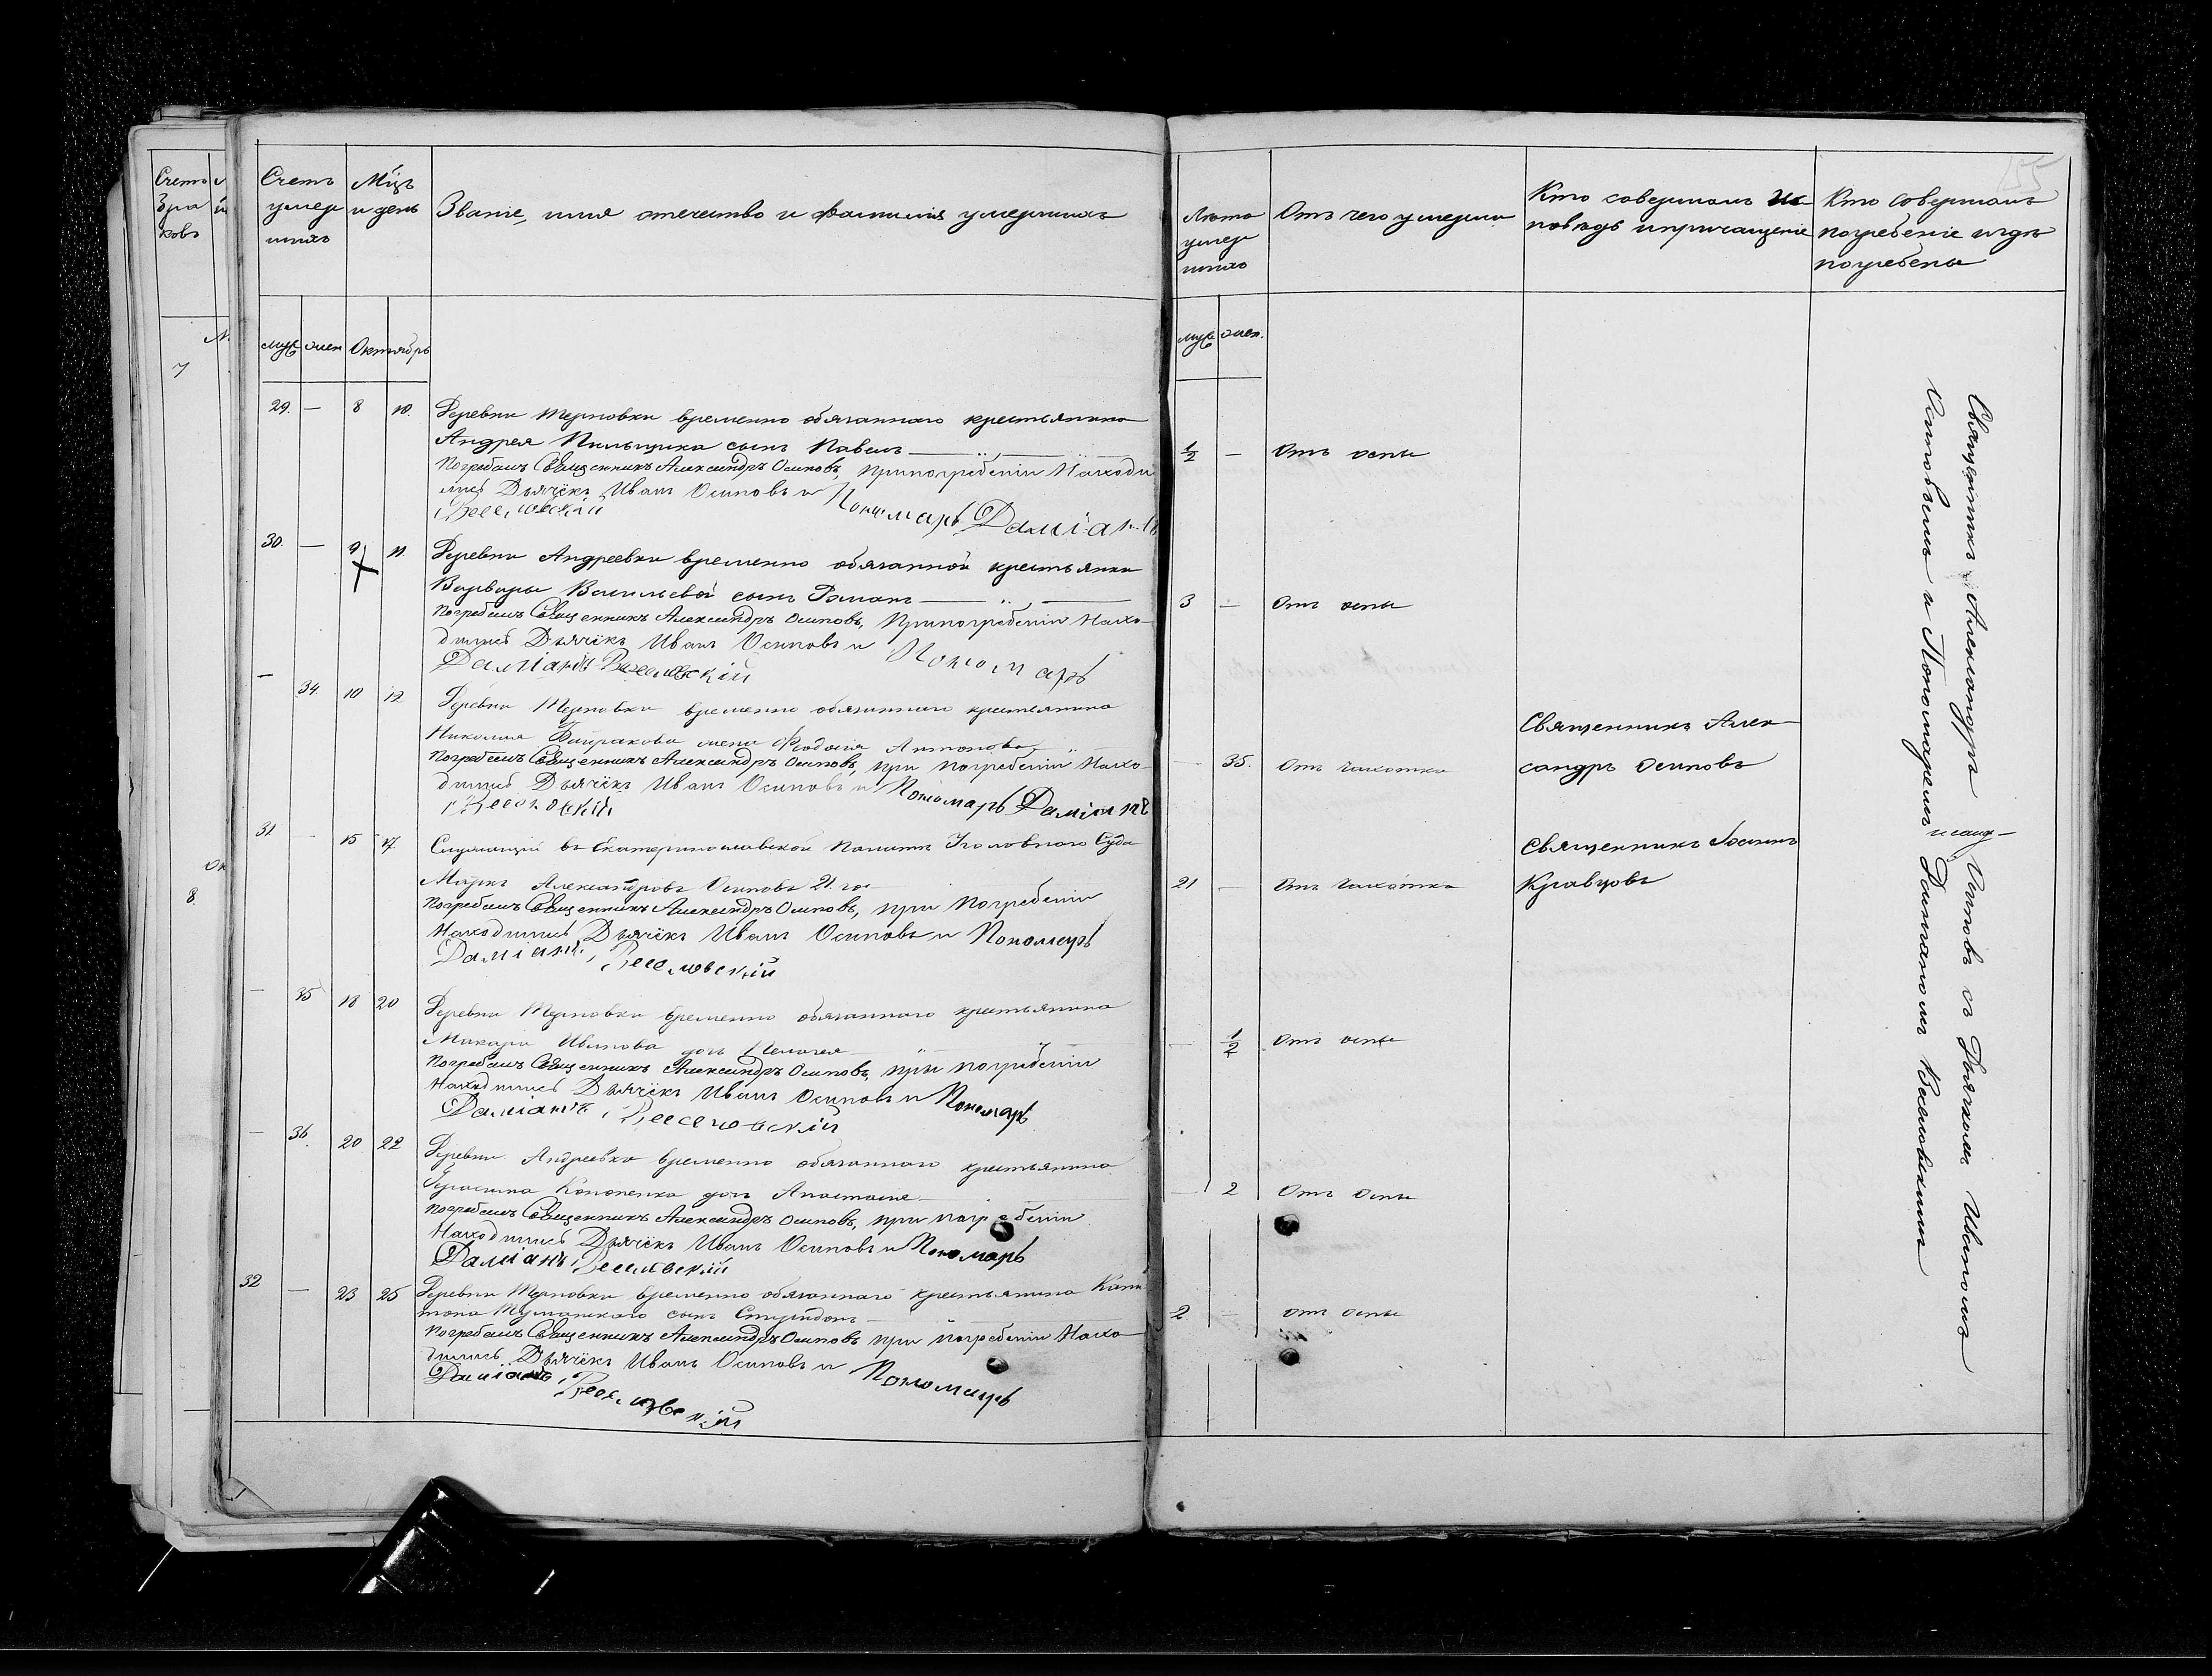 Счетъ
бра
ковъ
7
8.
Счетъ
умер
шихъ
Мцъ
и день
Званіе, имя отечество и фамилія умершихъ
муж жен Октябрь
29. — 8 10. Деревни Терновки временно обязаннаго крестьянина
Андрея Пильщика сынъ Павелъ
Погребалъ Священникъ Александръ Осиповъ, при погребеніи Находи
лись Дьячёкъ Иванъ Осиповъ и Пономарь Даміанъ
Веселовскій
30. — 9 11. Деревни Андреевки временно обязанной крестьянки
Варвары Васильевой сынъ Романъ
Погребалъ Священникъ Александръ Осиповъ, При погребеніи Нахо-
дились Дьячёкъ Иванъ Осиповъ и Пономарь
Даміанъ Веселовскій
— 34. 10 12 Деревни Терновки временно обязаннаго крестьянина
Николая жена Феодосія Антонова
Погребалъ Священникъ Александръ Осиповъ, при погребеніи Нахо-
дились Дьячёкъ Иванъ Осиповъ и Пономарь Даміанъ
Веселовскій
31. — 15 17. Служащій въ Екатеринославской Палатѣ Уголовнаго Суда
Маркъ Александровъ Осиповъ 21. год
Погребалъ Священникъ Александръ Осиповъ, при Погребеніи
Находились Дьячёкъ Иванъ Осиповъ и Пономарь
Даміанъ Веселовскій
— 35 18 20 Деревни Терновки временно обязаннаго крестьянина
Макара Иванова дочь Пелагея
Погребалъ Священникъ Александръ Осиповъ, при погребеніи
Находились Дьячёкъ Иванъ Осиповъ и Пономарь
Даміанъ Веселовскій
— 36. 20 22 Деревни Андреевки временно обязаннаго крестьянина
Герасима Кононенка дочь Анастасія
Погребалъ Священникъ Александръ Осиповъ, при погребеніи
Находились Дьячёкъ Иванъ Осиповъ и Пономарь
Даміанъ Веселовскій
32 — 23 25 Деревни Терновки временно обязаннаго крестьянина Капи
тона сынъ Спиридонъ
Погребалъ Священникъ Александръ Осиповъ при погребеніи Нахо-
дились Дьячёкъ Иванъ Осиповъ и Пономарь
Даміанъ Веселовскій
Лѣта
умер
шихъ
Отъ чего умерли
Кто совершалъ ис
повѣдь и причащеніе
Кто совершалъ
погребеніе и гдѣ
погребены
муж жен.
1/2 — Отъ оспы
3 — Отъ оспы
Священникъ Алек-
— 35. Отъ чахотки сандръ Осиповъ
Священникъ Іоаннъ
21 — Отъ чахотки Кравцовъ
— 1/2 Отъ оспы
— 2 Отъ Оспы
2 — отъ оспы
Священникъ Александръ Осиповъ съ Дьячкомъ Иваномъ
Осиповымъ и Пономаремъ Даміаномъ Веселовскимъ